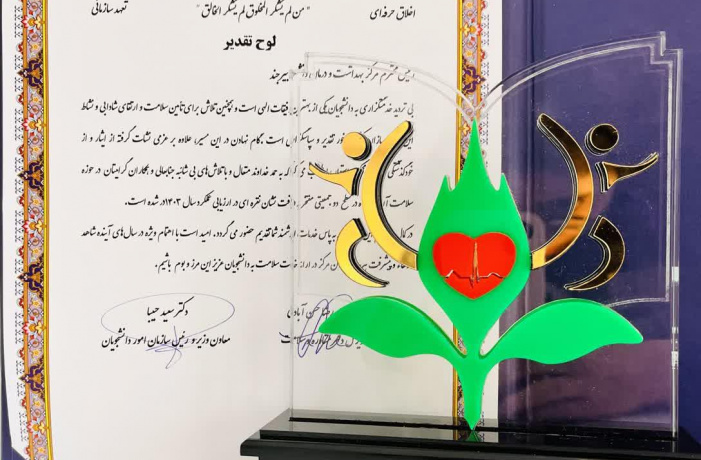 اخلاق حرفه‌ای
" من لم یشکر المخلوق لم یشکر الخالق "
تعهد سازمانی
لوح تقدیر
رئیس محترم مرکز بهداشت و درمان دانشجو بیرجند
بی تردید خدمتگزاری به دانشجویان یکی از بهترین توفیقات الهی است و همچنین تلاش برای تأمین سلامت و ارتقای شادابی و نشاط
این تقدیر و سپاسگزاری است . گام نهادن در این مسیر، علاوه بر عزمی نشات گرفته از ایثار و از
خودگذشتگی که به حمد خداوند متعال و با تلاش‌های بی شائبه جنابعالی و همکاران گرامیتان در حوزه
سلامت در سطح دو جمعیتی مفتخر به دریافت نشان نقره ای در ارزیابی عملکرد سال ۱۴۰۳ شده است.
به پاس خدمات ارزشمند شما تقدیم حضور می گردد. امید است با اهتمام ویژه در سال‌های آینده شاهد
و پیشرفت آن مرکز در ارائه خدمات سلامت به دانشجویان عزیز این مرز و بوم باشیم.
حسن آبادی
دکتر سعید حبیبا
معاون وزیر و رئیس سازمان امور دانشجویان